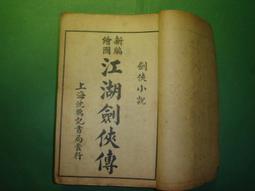 劍俠小説
新編
繪圖
江湖劍俠傳
上海沈鶴記書局發行